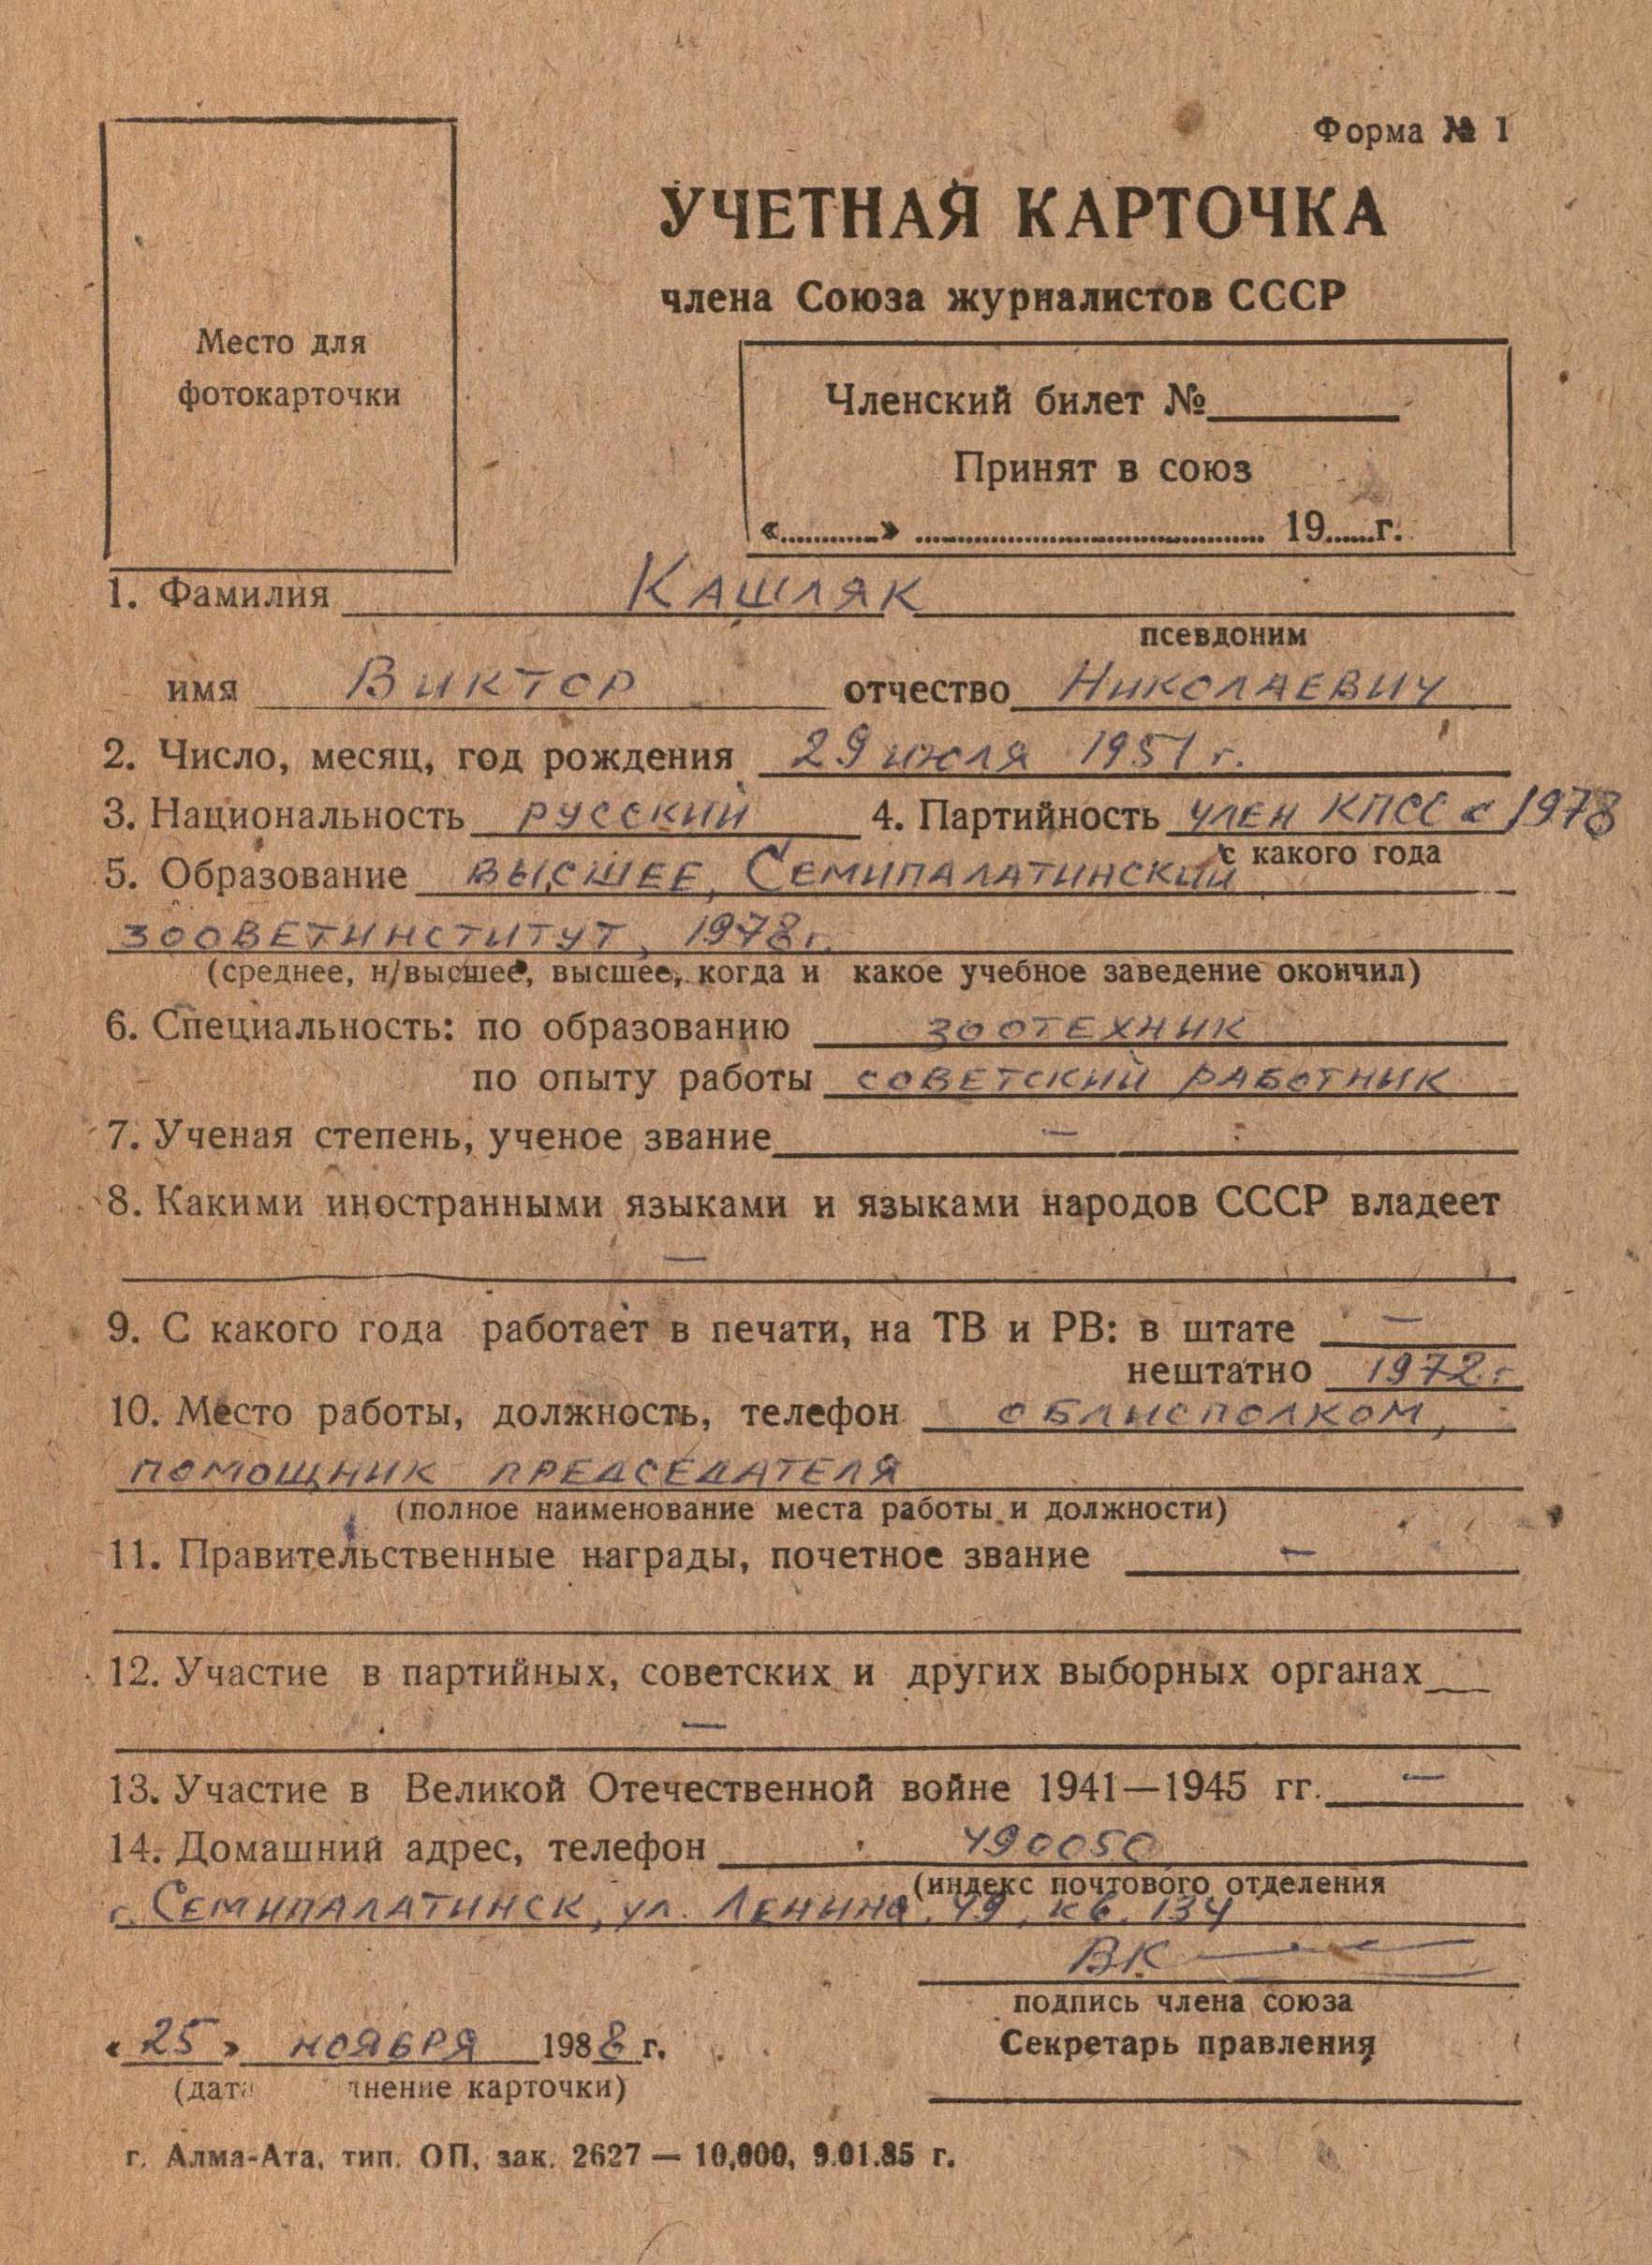 Форма № 1
УЧЕТНАЯ КАРТОЧКА
члена Союза журналистов СССР
Место для
фотокарточки
Членский билет №
Принят в союз
«...........» ................................... 19.....г.
1. Фамилия Кашляк
псевдоним
имя Виктор отчество Николаевич
2. Число, месяц, год рождения 29 июля 1951 г.
3. Национальность русский 4. Партийность член КПСС с 1978
с какого года
5. Образование высшее, Семипалатинский
зооветинститут, 1978г.
(среднее, н/высшее, высшее, когда и какое учебное заведение окончил)
6. Специальность: по образованию зоотехник
по опыту работы советский работник
7. Ученая степень, ученое звание —
8. Какими иностранными языками и языками народов СССР владеет
—
9. С какого года работает в печати, на ТВ и РВ: в штате —
нештатно 1972 г
10. Место работы, должность, телефон облисполком,
помощник председателя
(полное наименование места работы и должности)
11. Правительственные награды, почетное звание —
12. Участие в партийных, советских и других выборных органах
—
13. Участие в Великой Отечественной войне 1941—1945 гг. —
14. Домашний адрес, телефон 490050
(индекс почтового отделения
г. Семипалатинск, ул. Ленина, 49, кв. 134
ВК
подпись члена союза
«25» ноября 1988 г.
Секретарь правления
(дата нение карточки)
г. Алма-Ата, тип. ОП, зак. 2627 — 10,000, 9.01.85 г.